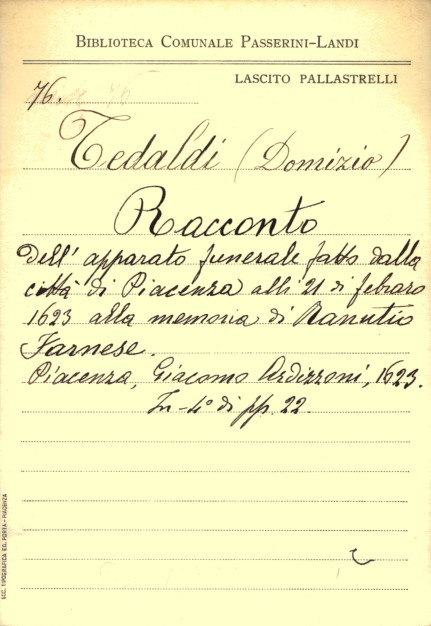 BIBLIOTECA COMUNALE PASSERINI-LANDI
LASCITO PALLASTRELLI
76.
Tedaldi (Domizio)
Racconto
dell' apparato funerale fatto dalla
città di Piacenza alli 21 di febraro
1623 alla memoria di Ranutio
Farnese.
Piacenza, Giacomo Ardizzoni, 1623.
In-4° di pp. 22.
SOC. TIPOGRAFICA ED. PORTA - PIACENZA